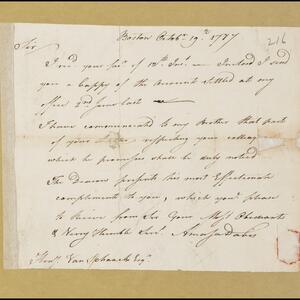 Boston Octobr. 19th 1787
216
Sir
I recd. your favr. of 12th Inst. Inclosed I send
you a Coppy of the Account Settled at my
office 2nd June last
I have communicated to my Brother that part
of your respecting your
which he promises shall be duly noticed
The Deacon presents his most Affectionate
compliments to you, which you'l please
to Receive from Sir Your Most Obedient
& Verry Humble Servt. Amasa Davis
Henry Van Schaack Esqr.